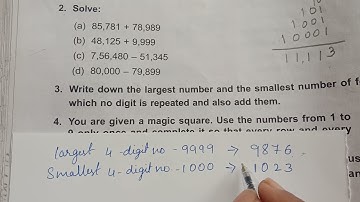 2. Solve:
(a) 85,781 + 78,989
(b) 48,125 + 9,999
(c) 7,56,480 – 51,345
(d) 80,000 – 79,899
101
1001
10001
11,113
3. Write down the largest number and the smallest number of f
which no digit is repeated and also add them.
4. You are given a magic square. Use the numbers from 1 to
9 only once and complete it so that every row and every
largest 4-digit no - 9999 → 9876.
Smallest 4-digit no - 1000 → 1023